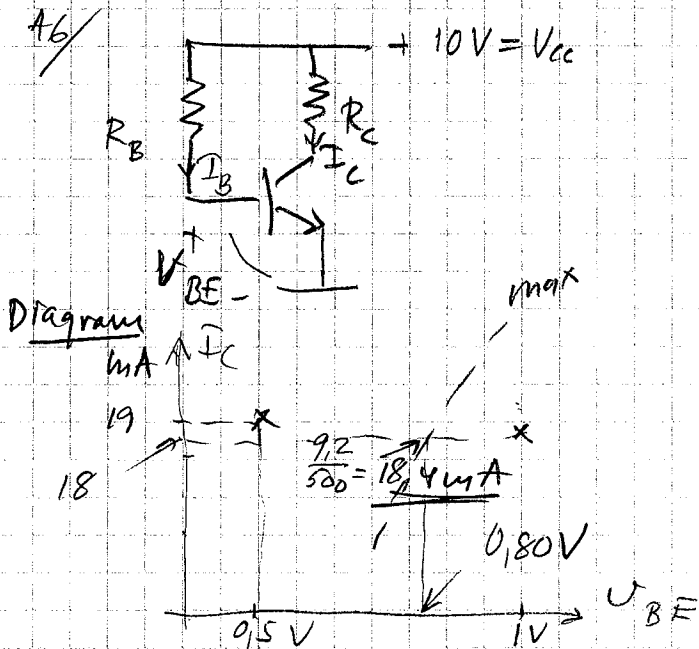 A6/
+ 10V = Vcc
R_B
R_C
I_B
I_C
+
V_BE
-
max
Diagram
mA
I_C
19
18
9,2/500 = 18,4mA
0,80V
0,5 V
1V
U_BE